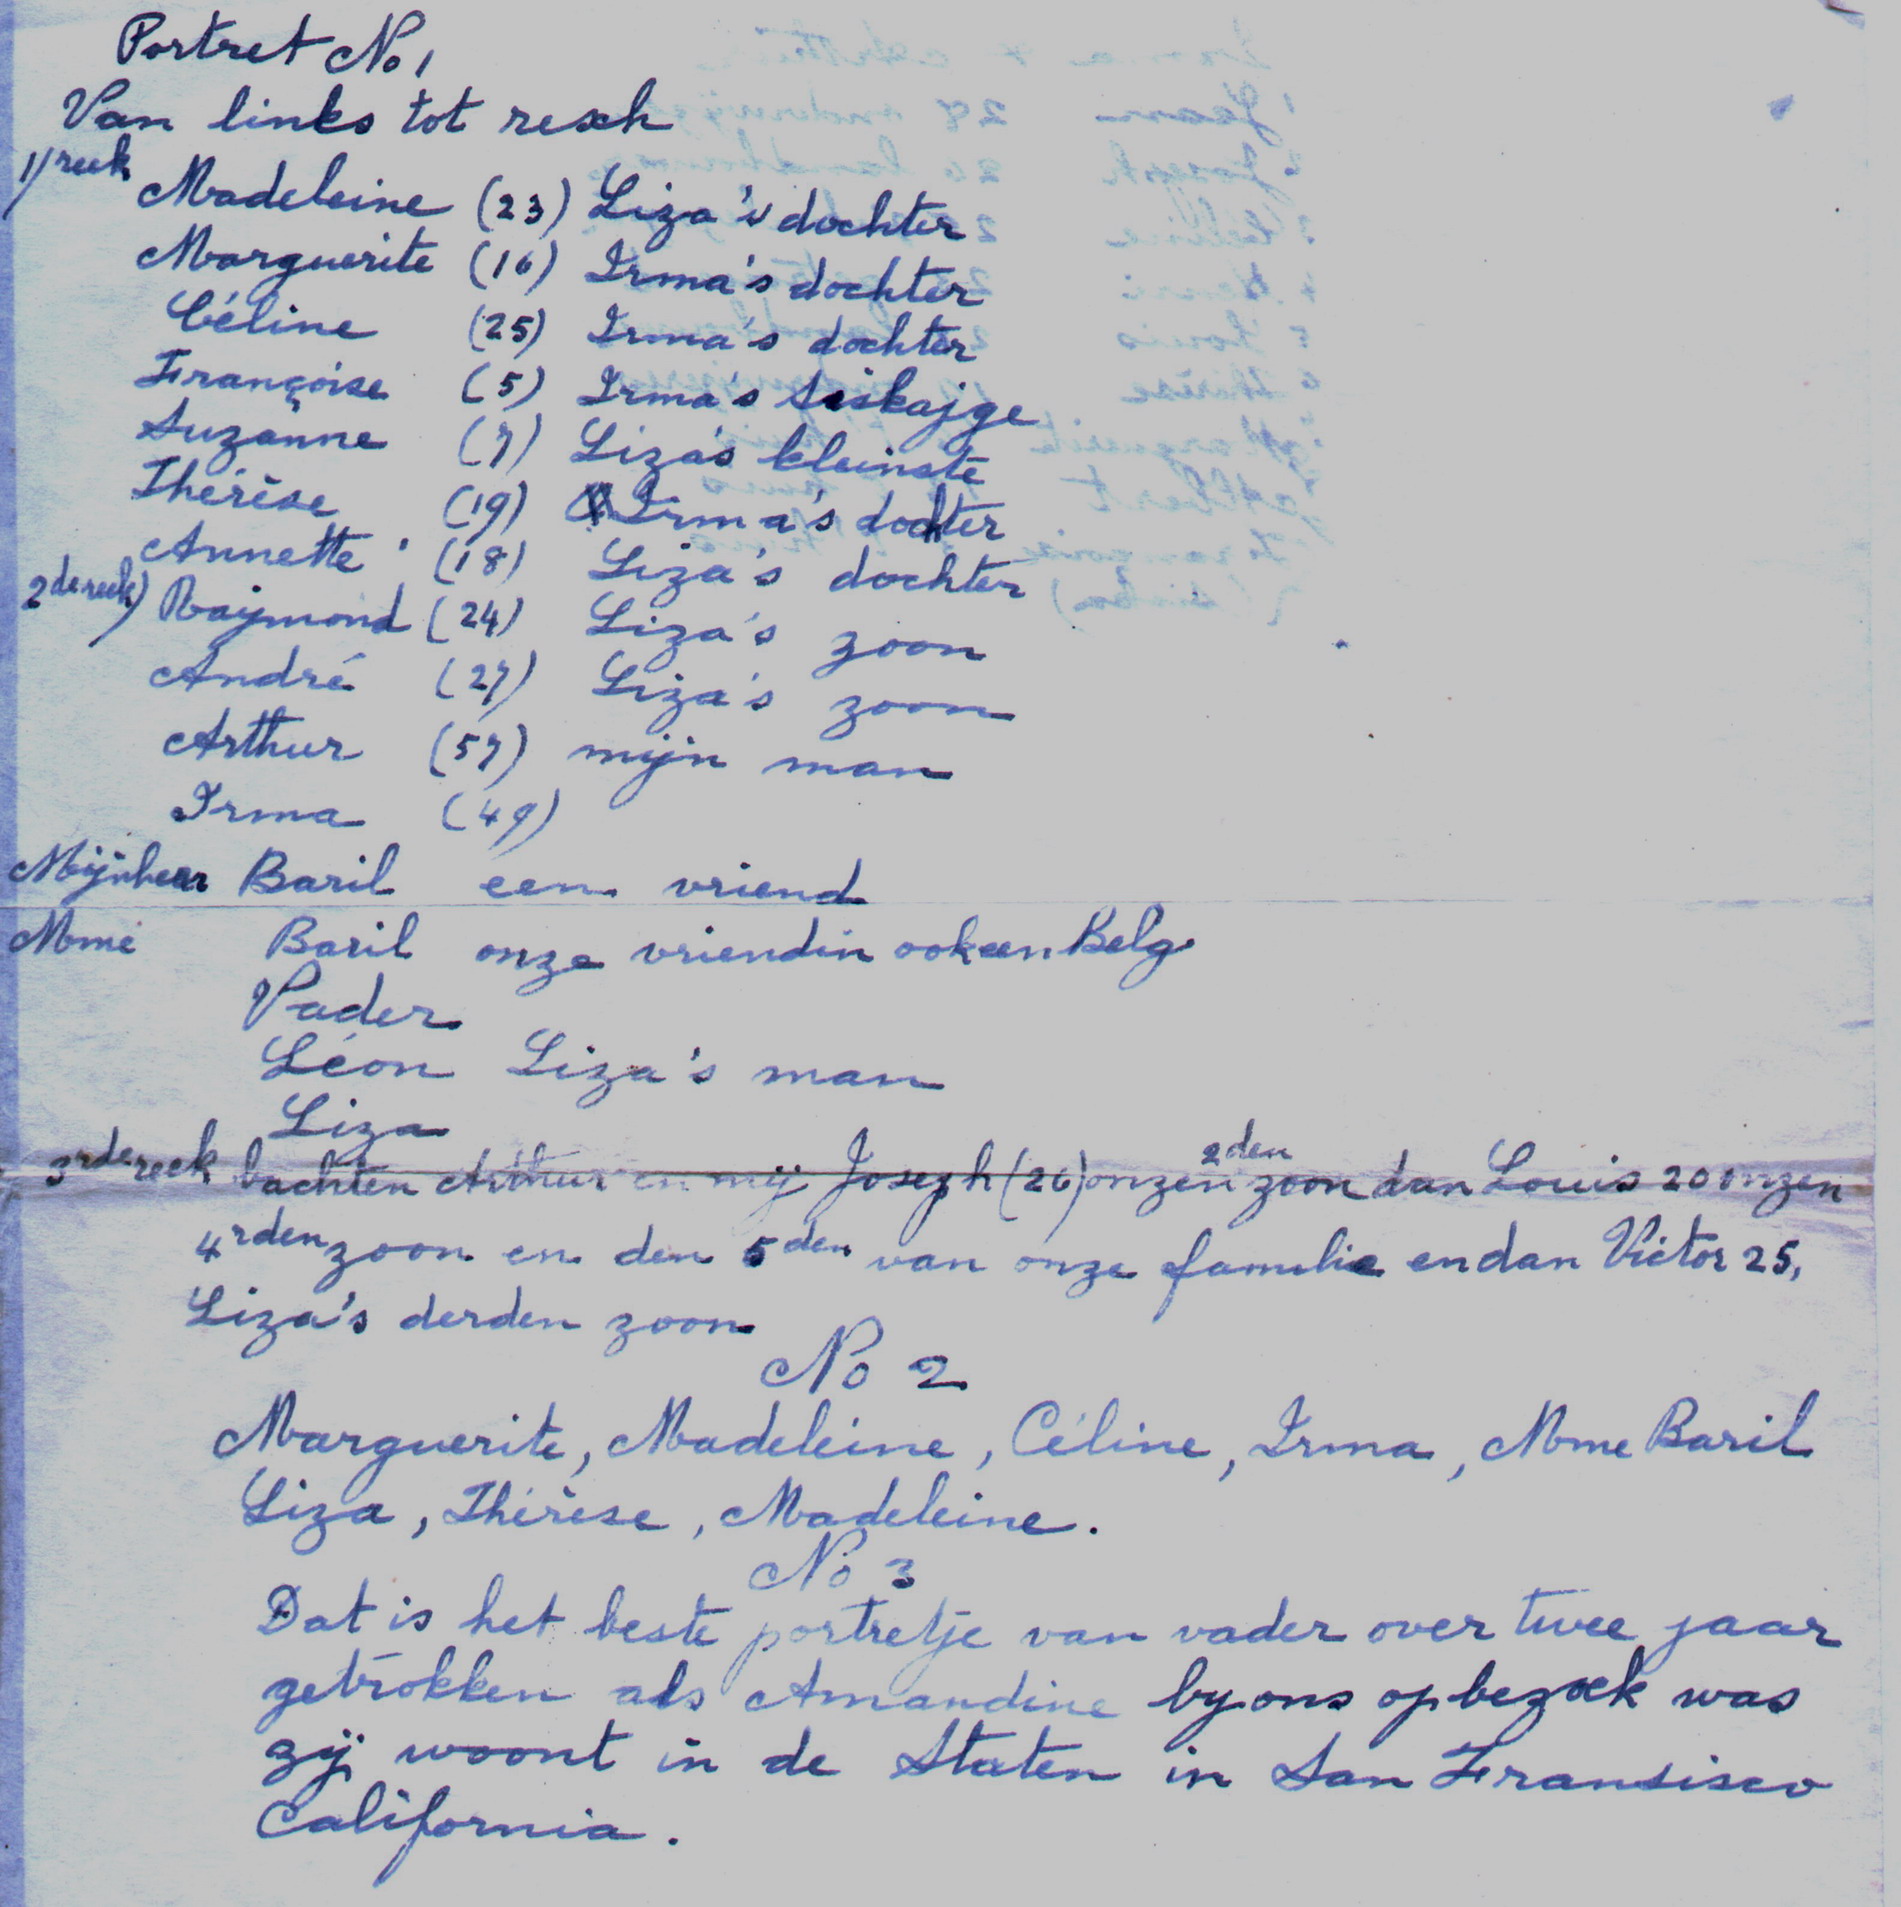 Portret No 1
Van links tot resch
1) reek
Madeleine (23) Liza's dochter
Marguerite (16) Irma's dochter
Céline (25) Irma's dochter
Françoise (5) Irma's siskajge
Suzanne (7) Liza's kleinste
Thérèse (19) Irma's dochter
Annette (18) Liza's dochter
2de reek) Raymond (24) Liza's zoon
André (27) Liza's zoon
Arthur (57) mijn man
Irma (49)
Mijnheer Baril een vriend
Mme Baril onze vriendin ook een Belg
Vader
Léon Liza's man
Liza
3rde reek bachten Arthur en mij Joseph (26) onzen 2den zoon dan Louis 20 onzen
4rden zoon en den 5den van onze familie en dan Victor 25,
Liza's derden zoon
No 2
Marguerite, Madeleine, Céline, Irma, Mme Baril
Liza, Thérèse, Madeleine.
No 3
Dat is het beste portretje van vader over twee jaar
getrokken als Amandine by ons op bezoek was
zij woont in de Staten in San Fransisco
California.